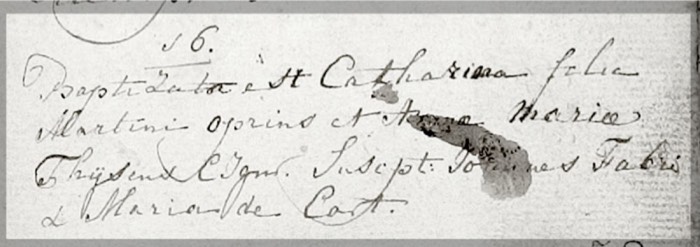 16.
Baptizata est Catharina filia
Martini oprins et Anna Mariæ
Thijsens Conj. Suscpt: Joannes Fabri
& Maria de Cort.